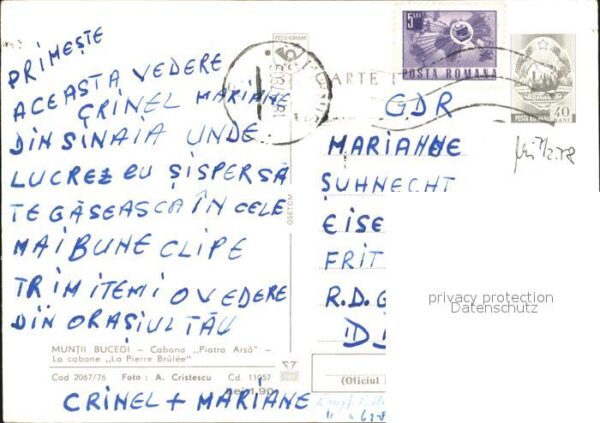 PRIMEȘTE
ACEASTA VEDERE
CRINEL MARIANE
DIN SINAIA UNDE
LUCREZ EU ȘI SPERSĂ
TE GĂSEASCA ÎN CELE
MAI BUNE CLIPE
TRIMITEMI O VEDERE
DIN ORAȘIUL TĂU
MUNȚII BUCEGI – Cabana „Piatra Arsă” –
La cabane „La Pierre Brûlée”
Cod 2067/76 Foto : A. Cristescu Cd. 11957
Lei 1,90
CRINEL + MARIANE
POȘTA ROMÂNĂ
OGETCM
5 LEI
POSTA ROMANA
ARTE
POSTA ROMANA 40 BANI
GDR
MARIANNE
ȘUHNECHT
EISE
FRIT
R.D.G
D
(Oficiul
privacy protection
Datenschutz